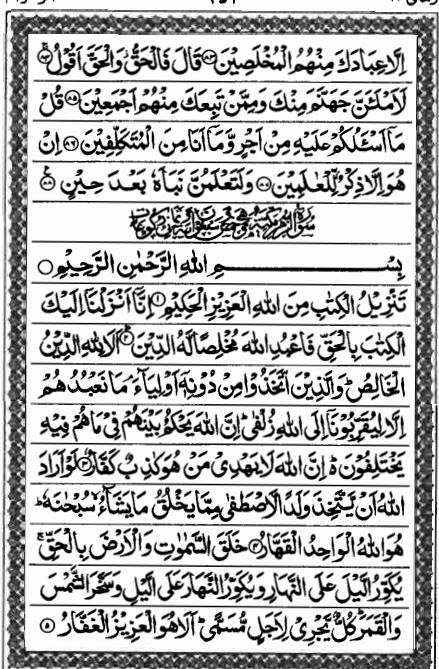 اِلَّا عِبَادَكَ مِنْهُمُ الْمُخْلَصِيْنَ ۝۸۳ قَالَ فَالْحَقُّ وَالْحَقَّ اَقُوْلُ ۝۸۴
لَاَمْلَـَٔنَّ جَهَنَّمَ مِنْكَ وَمِمَّنْ تَبِعَكَ مِنْهُمْ اَجْمَعِيْنَ ۝۸۵ قُلْ
مَاۤ اَسْـَٔلُكُمْ عَلَيْهِ مِنْ اَجْرٍ وَّمَاۤ اَنَا مِنَ الْمُتَكَلِّفِيْنَ ۝۸۶ اِنْ
هُوَ اِلَّا ذِكْرٌ لِّلْعٰلَمِيْنَ ۝۸۷ وَلَتَعْلَمُنَّ نَبَاَهٗ بَعْدَ حِيْنٍ ۝۸۸
بِسْمِ اللّٰهِ الرَّحْمٰنِ الرَّحِيْمِ ۝
تَنْزِيْلُ الْكِتٰبِ مِنَ اللّٰهِ الْعَزِيْزِ الْحَكِيْمِ ۝۱ اِنَّاۤ اَنْزَلْنَاۤ اِلَيْكَ
الْكِتٰبَ بِالْحَقِّ فَاعْبُدِ اللّٰهَ مُخْلِصًا لَّهُ الدِّيْنَ ۝۲ اَلَا لِلّٰهِ الدِّيْنُ
الْخَالِصُ ؕ وَالَّذِيْنَ اتَّخَذُوْا مِنْ دُوْنِهٖۤ اَوْلِيَآءَ ۘ مَا نَعْبُدُهُمْ
اِلَّا لِيُقَرِّبُوْنَاۤ اِلَى اللّٰهِ زُلْفٰى ؕ اِنَّ اللّٰهَ يَحْكُمُ بَيْنَهُمْ فِيْ مَا هُمْ فِيْهِ
يَخْتَلِفُوْنَ ؕ۬ اِنَّ اللّٰهَ لَا يَهْدِيْ مَنْ هُوَ كٰذِبٌ كَفَّارٌ ۝۳ لَوْ اَرَادَ
اللّٰهُ اَنْ يَّتَّخِذَ وَلَدًا لَّاصْطَفٰى مِمَّا يَخْلُقُ مَا يَشَآءُ ۙ سُبْحٰنَهٗ ؕ
هُوَ اللّٰهُ الْوَاحِدُ الْقَهَّارُ ۝۴ خَلَقَ السَّمٰوٰتِ وَالْاَرْضَ بِالْحَقِّ ۚ
يُكَوِّرُ الَّيْلَ عَلَى النَّهَارِ وَيُكَوِّرُ النَّهَارَ عَلَى الَّيْلِ وَسَخَّرَ الشَّمْسَ
وَالْقَمَرَ ؕ كُلٌّ يَّجْرِيْ لِاَجَلٍ مُّسَمًّى ؕ اَلَا هُوَ الْعَزِيْزُ الْغَفَّارُ ۝۵